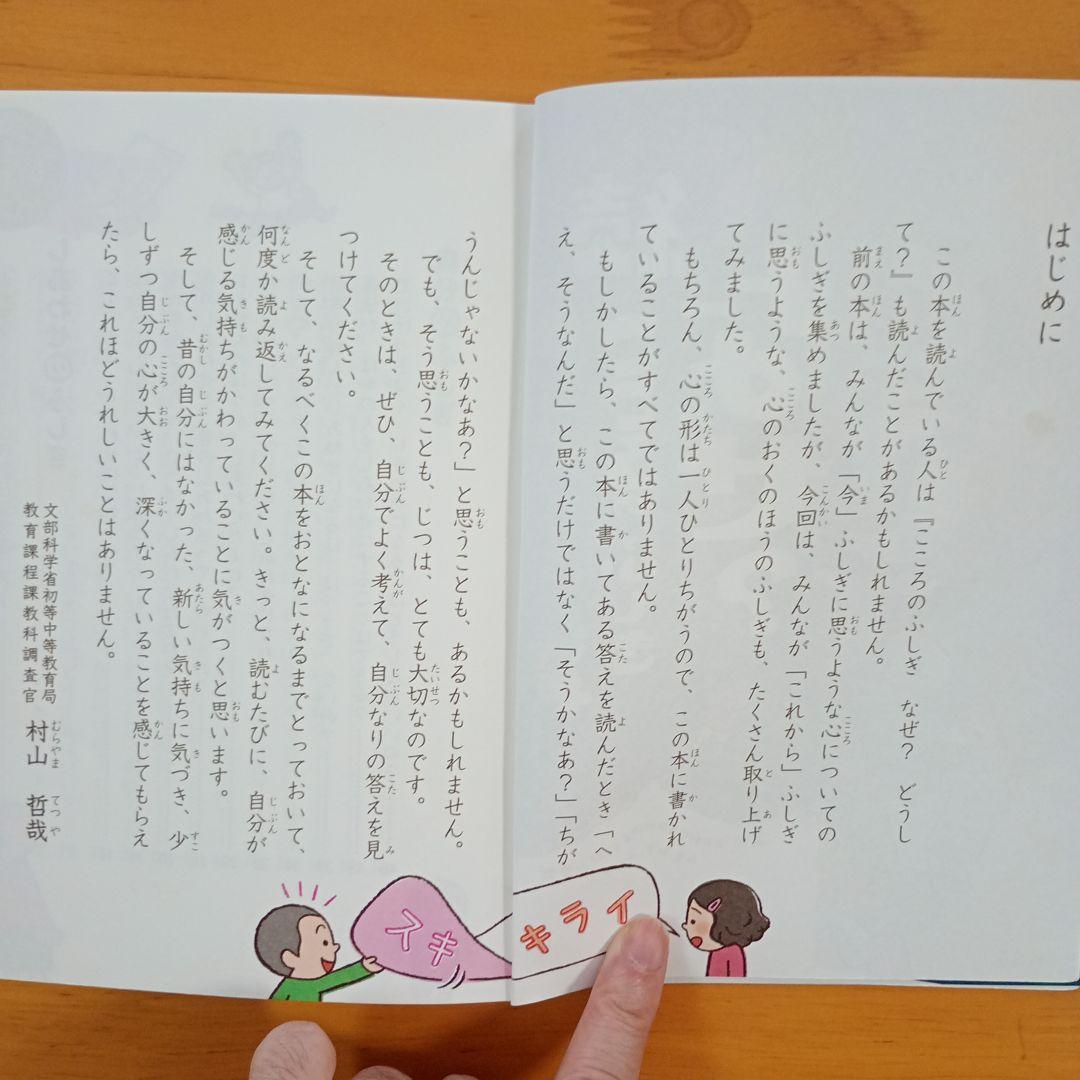 はじめに
この本を読んでいる人は『こころのふしぎ　なぜ？　どうし
て？』も読んだことがあるかもしれません。
前の本は、みんなが「今」ふしぎに思うような心についての
ふしぎを集めましたが、今回は、みんなが「これから」ふしぎ
に思うような、心のおくのほうのふしぎも、たくさん取り上げ
てみました。
もちろん、心の形は一人ひとりちがうので、この本に書かれ
ていることがすべてではありません。
もしかしたら、この本に書いてある答えを読んだとき「へ
え、そうなんだ」と思うだけではなく「そうかなあ？」「ちが
うんじゃないかなあ？」と思うことも、あるかもしれません。
でも、そう思うことも、じつは、とても大切なのです。
そのときは、ぜひ、自分でよく考えて、自分なりの答えを見
つけてください。
そして、なるべくこの本をおとなになるまでとっておいて、
何度か読み返してみてください。きっと、読むたびに、自分が
感じる気持ちがかわっていることに気がつくと思います。
そして、昔の自分にはなかった、新しい気持ちに気づき、少
しずつ自分の心が大きく、深くなっていることを感じてもらえ
たら、これほどうれしいことはありません。
文部科学省初等中等教育局
教育課程課教科調査官　村山　哲哉
スキ
キライ